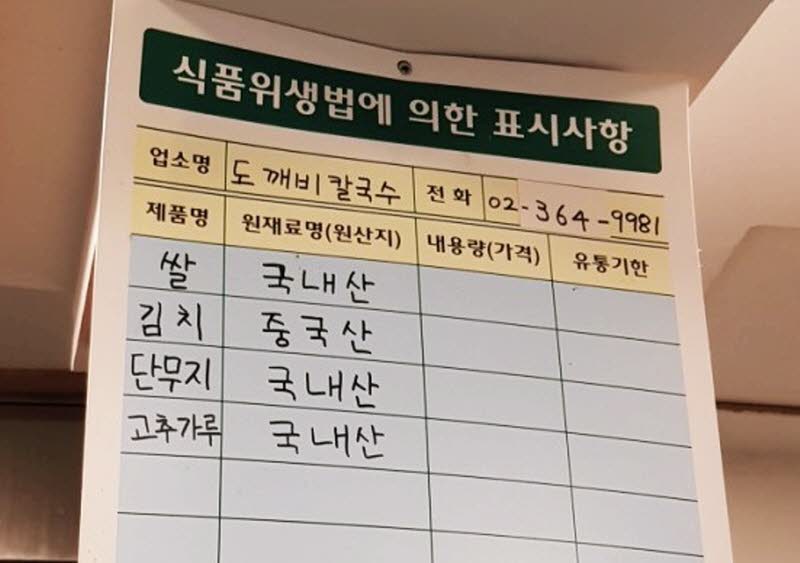 식품위생법에 의한 표시사항
업소명 도깨비칼국수 전화 02-364-9981
제품명 원재료명(원산지) 내용량(가격) 유통기한
쌀 국내산
김치 중국산
단무지 국내산
고추가루 국내산